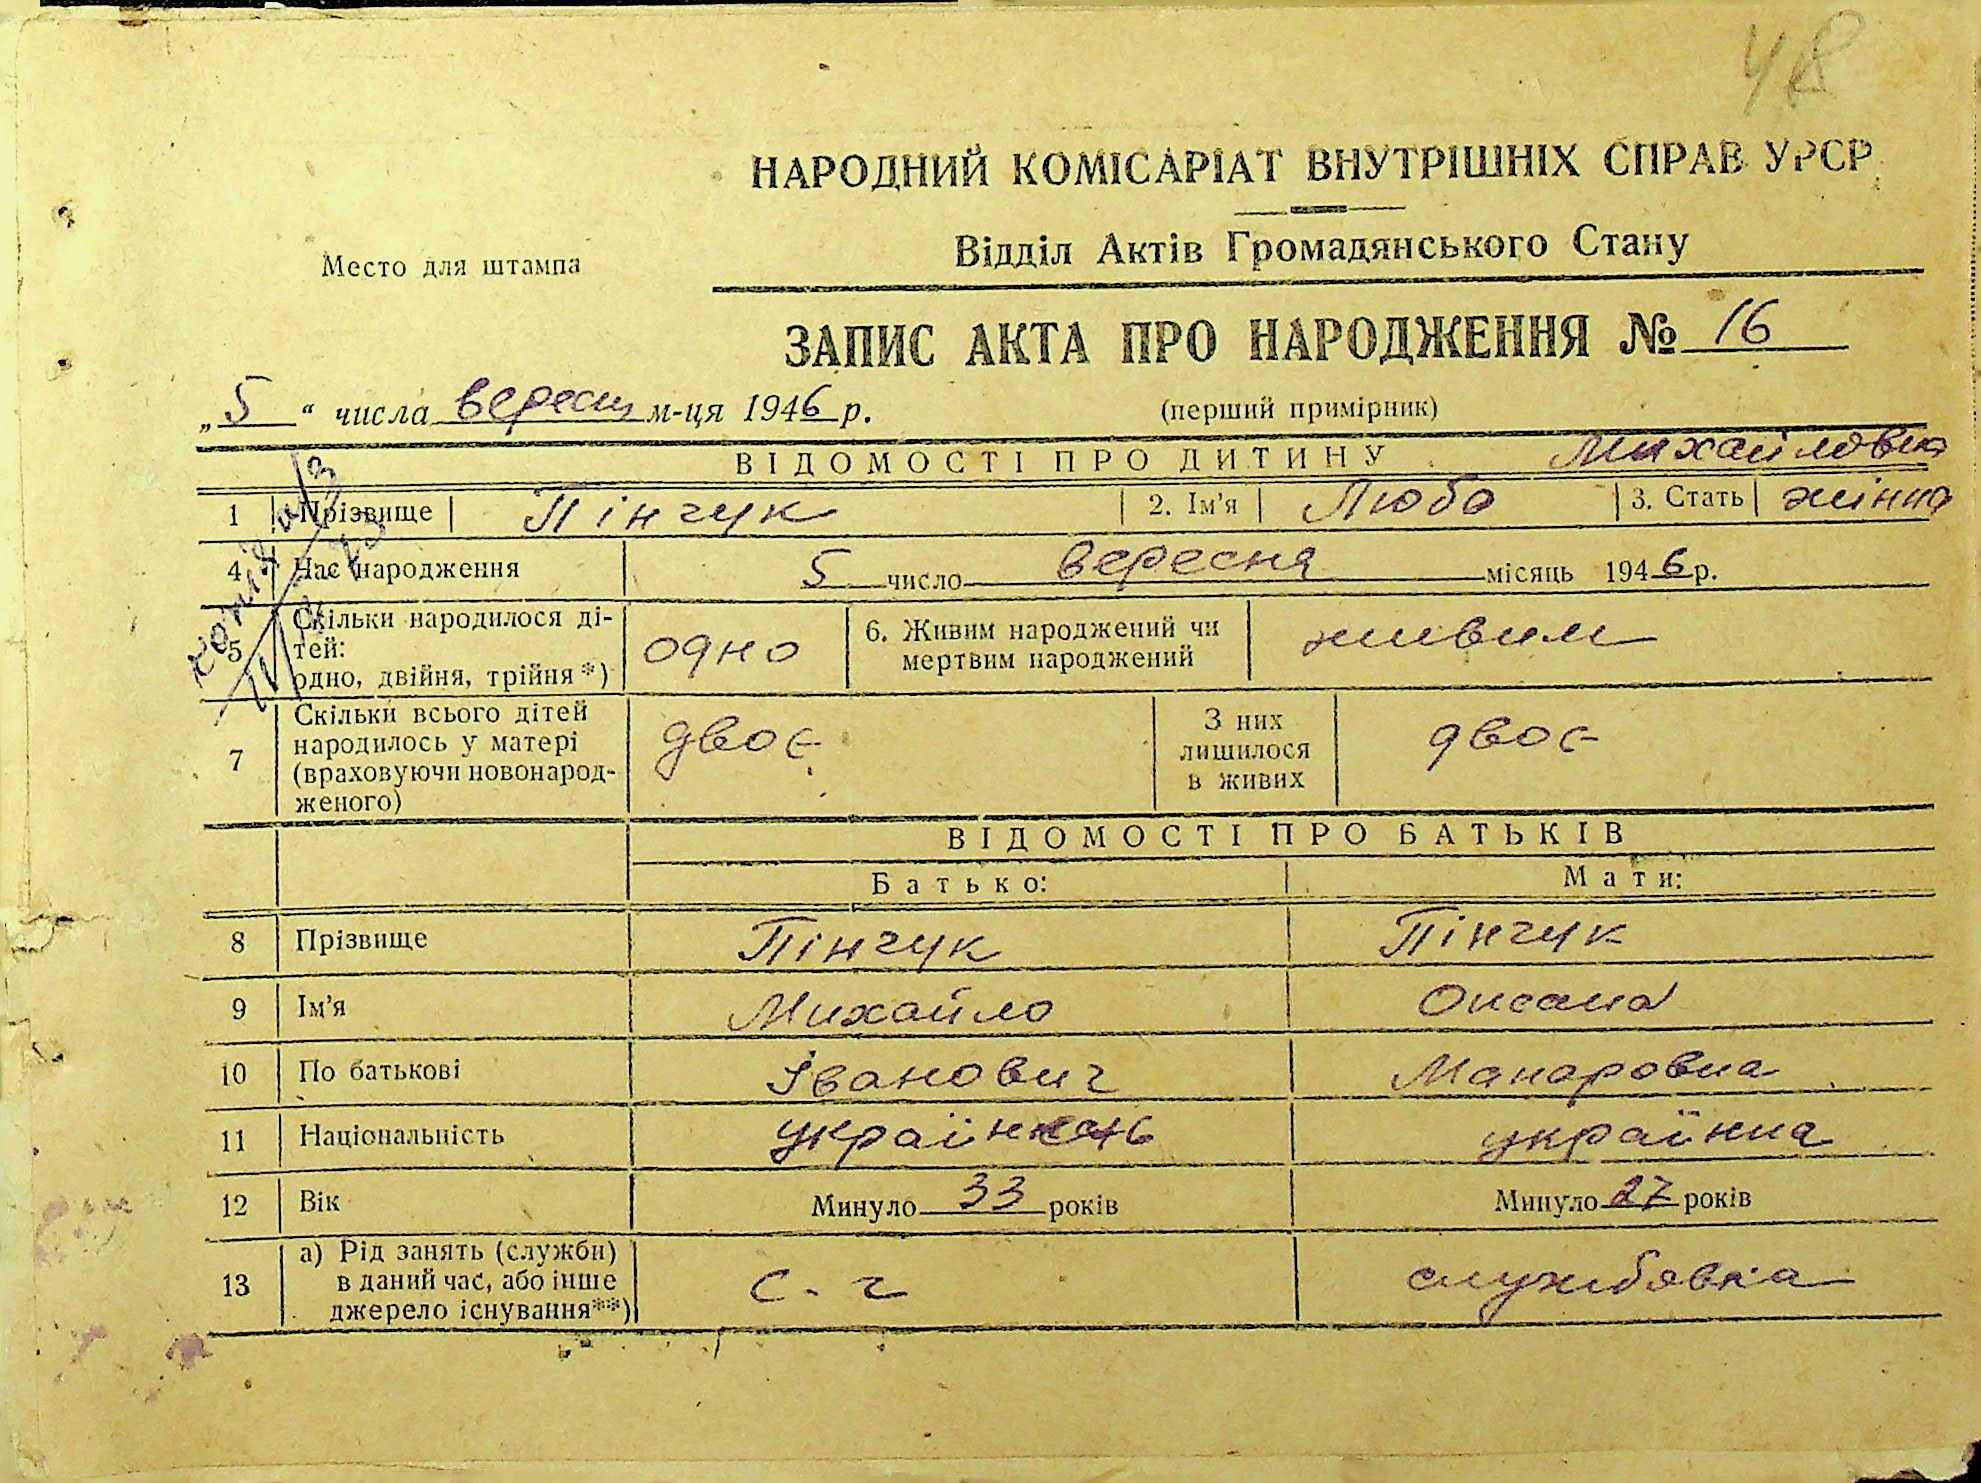 48
НАРОДНИЙ КОМІСАРІАТ ВНУТРІШНІХ СПРАВ УРСР
Відділ Актів Громадянського Стану
Место для штампа
ЗАПИС АКТА ПРО НАРОДЖЕННЯ № 16
„5“ числа вересня м-ця 1946 р. (перший примірник)
ВІДОМОСТІ ПРО ДИТИНУ Михайловна
1 Прізвище Пінчук 2. Ім'я Люба 3. Стать жінка
4 Час народження 5 число вересня місяць 1946 р.
5 Скільки народилося ді-
тей:
одно, двійня, трійня*) одно 6. Живим народжений чи
мертвим народжений живим
7 Скільки всього дітей
народилось у матері
(враховуючи новонарод-
женого) двоє З них
лишилося
в живих двоє
ВІДОМОСТІ ПРО БАТЬКІВ
Батько: Мати:
8 Прізвище Пінчук Пінчук
9 Ім'я Михайло Оксана
10 По батькові Іванович Макаровна
11 Національність українець українка
12 Вік Минуло 33 років Минуло 27 років
13 а) Рід занять (служби)
в даний час, або інше
джерело існування**) с. г службовка